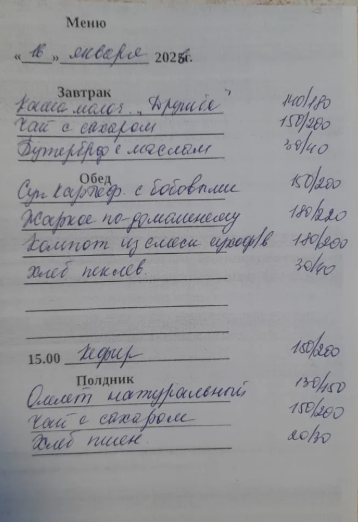 Меню
«16» января 202 г.
Завтрак
Каша молоч. „Дружба 140/180
Чай с сахаром 150/200
Бутерброд с маслом 30/40
Обед
Суп картоф. с бобовыми 150/200
Жаркое по-домашнему 180/220
Компот из смеси сухоф/в 180/200
Хлеб пеклев. 30/40
15.00 Кефир 150/200
Полдник
Омлет натуральный 130/150
Чай с сахаром 150/200
Хлеб пшен. 20/30